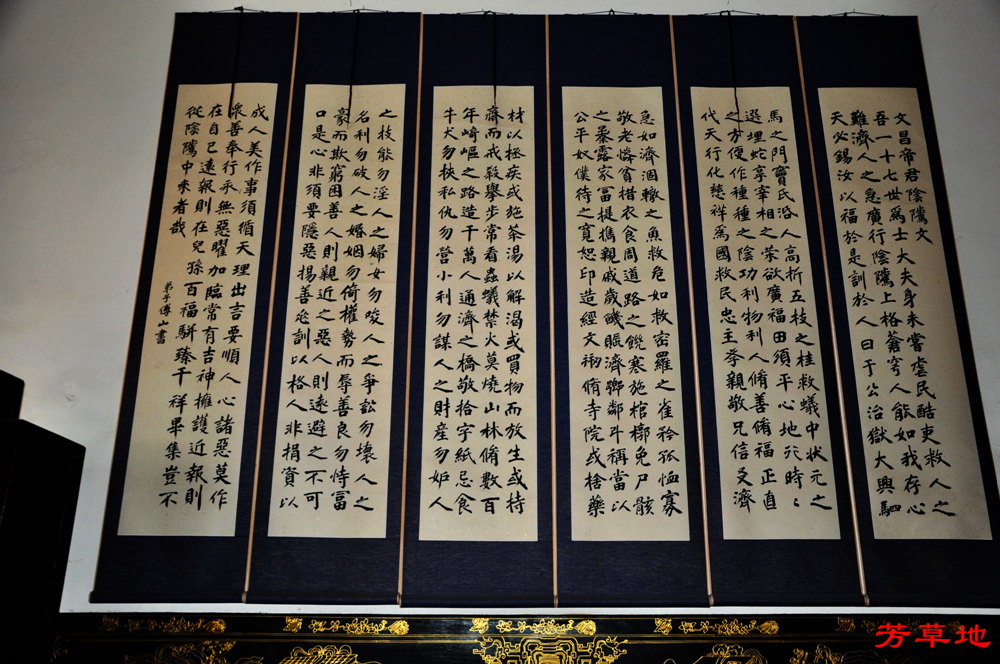 文昌帝君陰騭文
吾一十七世為士大夫身未嘗虐民酷吏救人之
難濟人之急廣行陰騭上格蒼穹人能如我存心
天必錫汝以福於是訓於人曰于公治獄大興駟
馬之門竇氏济人高折五枝之桂救蟻中狀元之
選埋蛇享宰相之榮欲廣福田須平心地行時時
之方便作種種之陰功利物利人脩善脩福正直
代天行化慈祥為國救民忠主孝親敬兄信友濟
急如濟涸轍之魚救危如救密羅之雀矜孤恤寡
敬老憐貧措衣食周道路之饑寒施棺槨免尸骸
之暴露家富提攜親戚歲饑賑濟鄰斗稱當以
公平奴僕待之寬恕印造經文刱脩寺院或捨藥
材以拯疾或施茶湯以解渴或買物而放生或持
齋而戒殺舉步常看蟲蟻禁火莫燒山林脩數百
年崎嶇之路造千萬人通濟之橋敬拾字紙忌食
牛犬勿挾私仇勿營小利勿謀人之財產勿妒人
之技能勿淫人之婦女勿唆人之爭訟勿壞人之
名利勿破人之婚姻勿倚權勢而辱善良勿恃富
豪而欺窮困善人則親近之惡人則遠避之不可
口是心非須要隱惡揚善垂訓以格人非捐資以
成人美作事須循天理出言要順人心諸惡莫作
眾善奉行永無惡曜加臨常有吉神擁護近報則
在自己遠報則在兒孫百福駢臻千祥畢集豈不
從陰騭中來者哉
弟子傅山書
芳草地